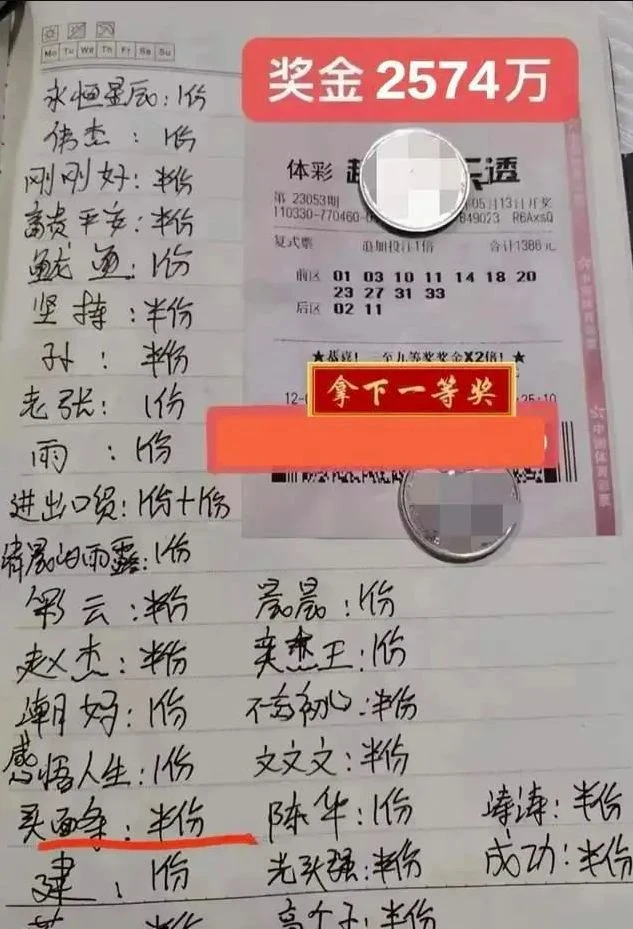 Mo Tu We Th Fr Sa Su
奖金 2574万
永恒星辰：1份
伟杰：1份
刚刚好：半份
富贵平安：半份
1份
坚持：半份
孙：半份
老张：1份
雨：1份
进出口贸：1份+1份
清晨的雨露：1份
彩云：半份 晨晨：1份
赵杰：半份 奕杰王：1份
潮妈：1份 不忘初心：半份
感悟人生：1份 文文文：半份
买面条：半份 陈华：1份 涛涛：半份
建：1份 光头强：半份 成功：半份
半份 高个子：半份
体彩 超 乐透
第 23053期 05月13日开奖
110330-770460-0 849023 R6AxsQ
复式票 追加投注1倍 合计1386元
前区 01 03 10 11 14 18 20
23 27 31 33
后区 02 11
★恭喜！一至九等奖奖金X2倍！★
拿下一等奖
25:10
☆中国体育彩票